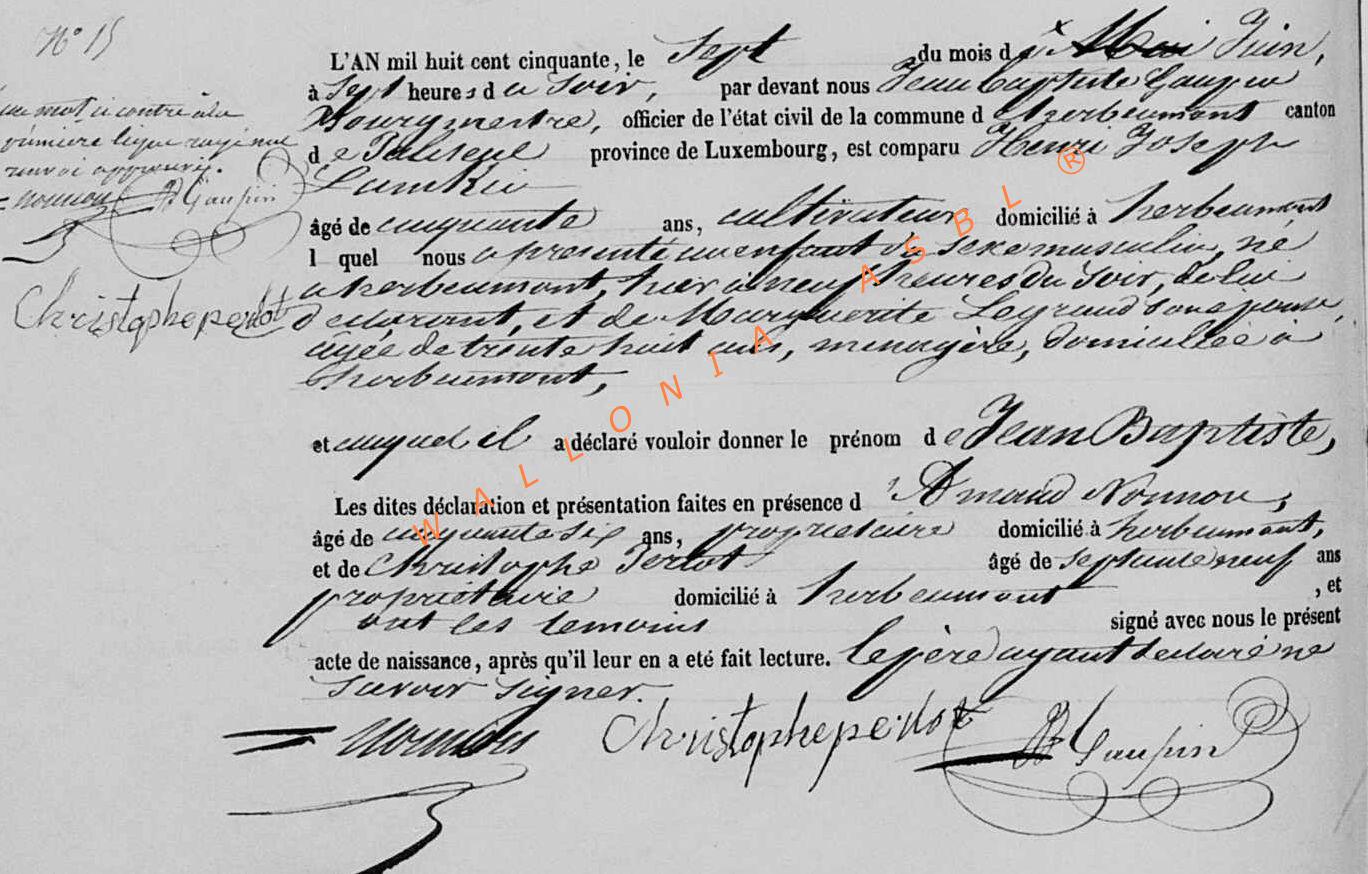 N° 15
L'AN mil huit cent cinquante, le Sept du mois d e Mai Juin,
à Sept heures d u Soir, par devant nous Jean Baptiste Gaupin
Bourgmestre, officier de l'état civil de la commune d'herbeumont canton
d e Paliseul province de Luxembourg, est comparu Henri Joseph
Lamkin
âgé de cinquante ans, cultivateur domicilié à herbeumont
l quel nous a présenté un enfant du sexe masculin, né
a herbeumont, hier à neuf heures du soir, de lui
déclarant, et de Marguerite Legrand son epouse,
agée de trente huit ans, menagère, domiciliée à
herbeumont,
et auquel il a déclaré vouloir donner le prénom d e Jean Baptiste,
Les dites déclaration et présentation faites en présence d'Amand Nonnon,
âgé de cinquante six ans, propriétaire domicilié à herbeumont,
et de Christophe Perlot âgé de septante neuf ans
propriétaire domicilié à herbeumont, et
ont les temoins signé avec nous le présent
acte de naissance, après qu'il leur en a eté fait lecture. le père ayant declaré ne
savoir signer.
nonnon Christophe perlot JB Gaupin
un mot ci contre à la
premiere ligne rayé nul
renvoi approuvé.
nonnon JB Gaupin
Christophe perlot
WALLONIA ASBL ®